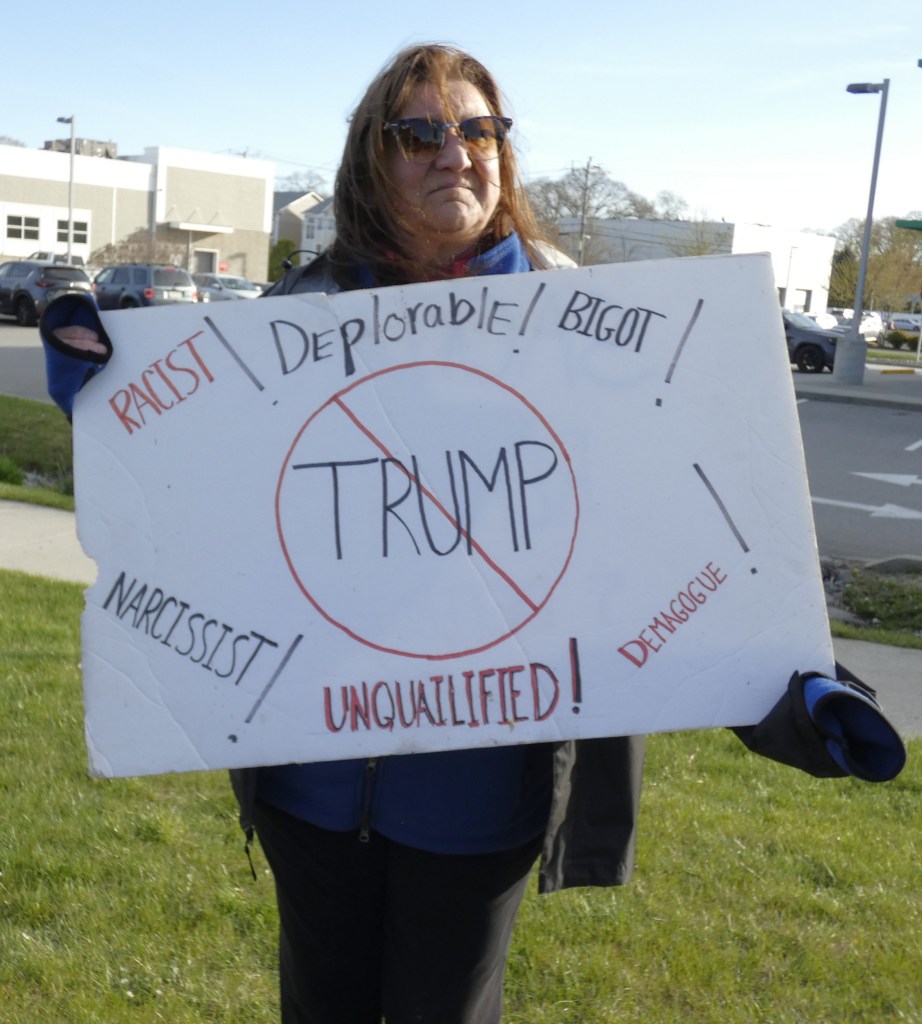 RACIST!
Deplorable!
BIGOT!
TRUMP
NARCISSIST!
DEMAGOGUE!
UNQUAILIFIED!